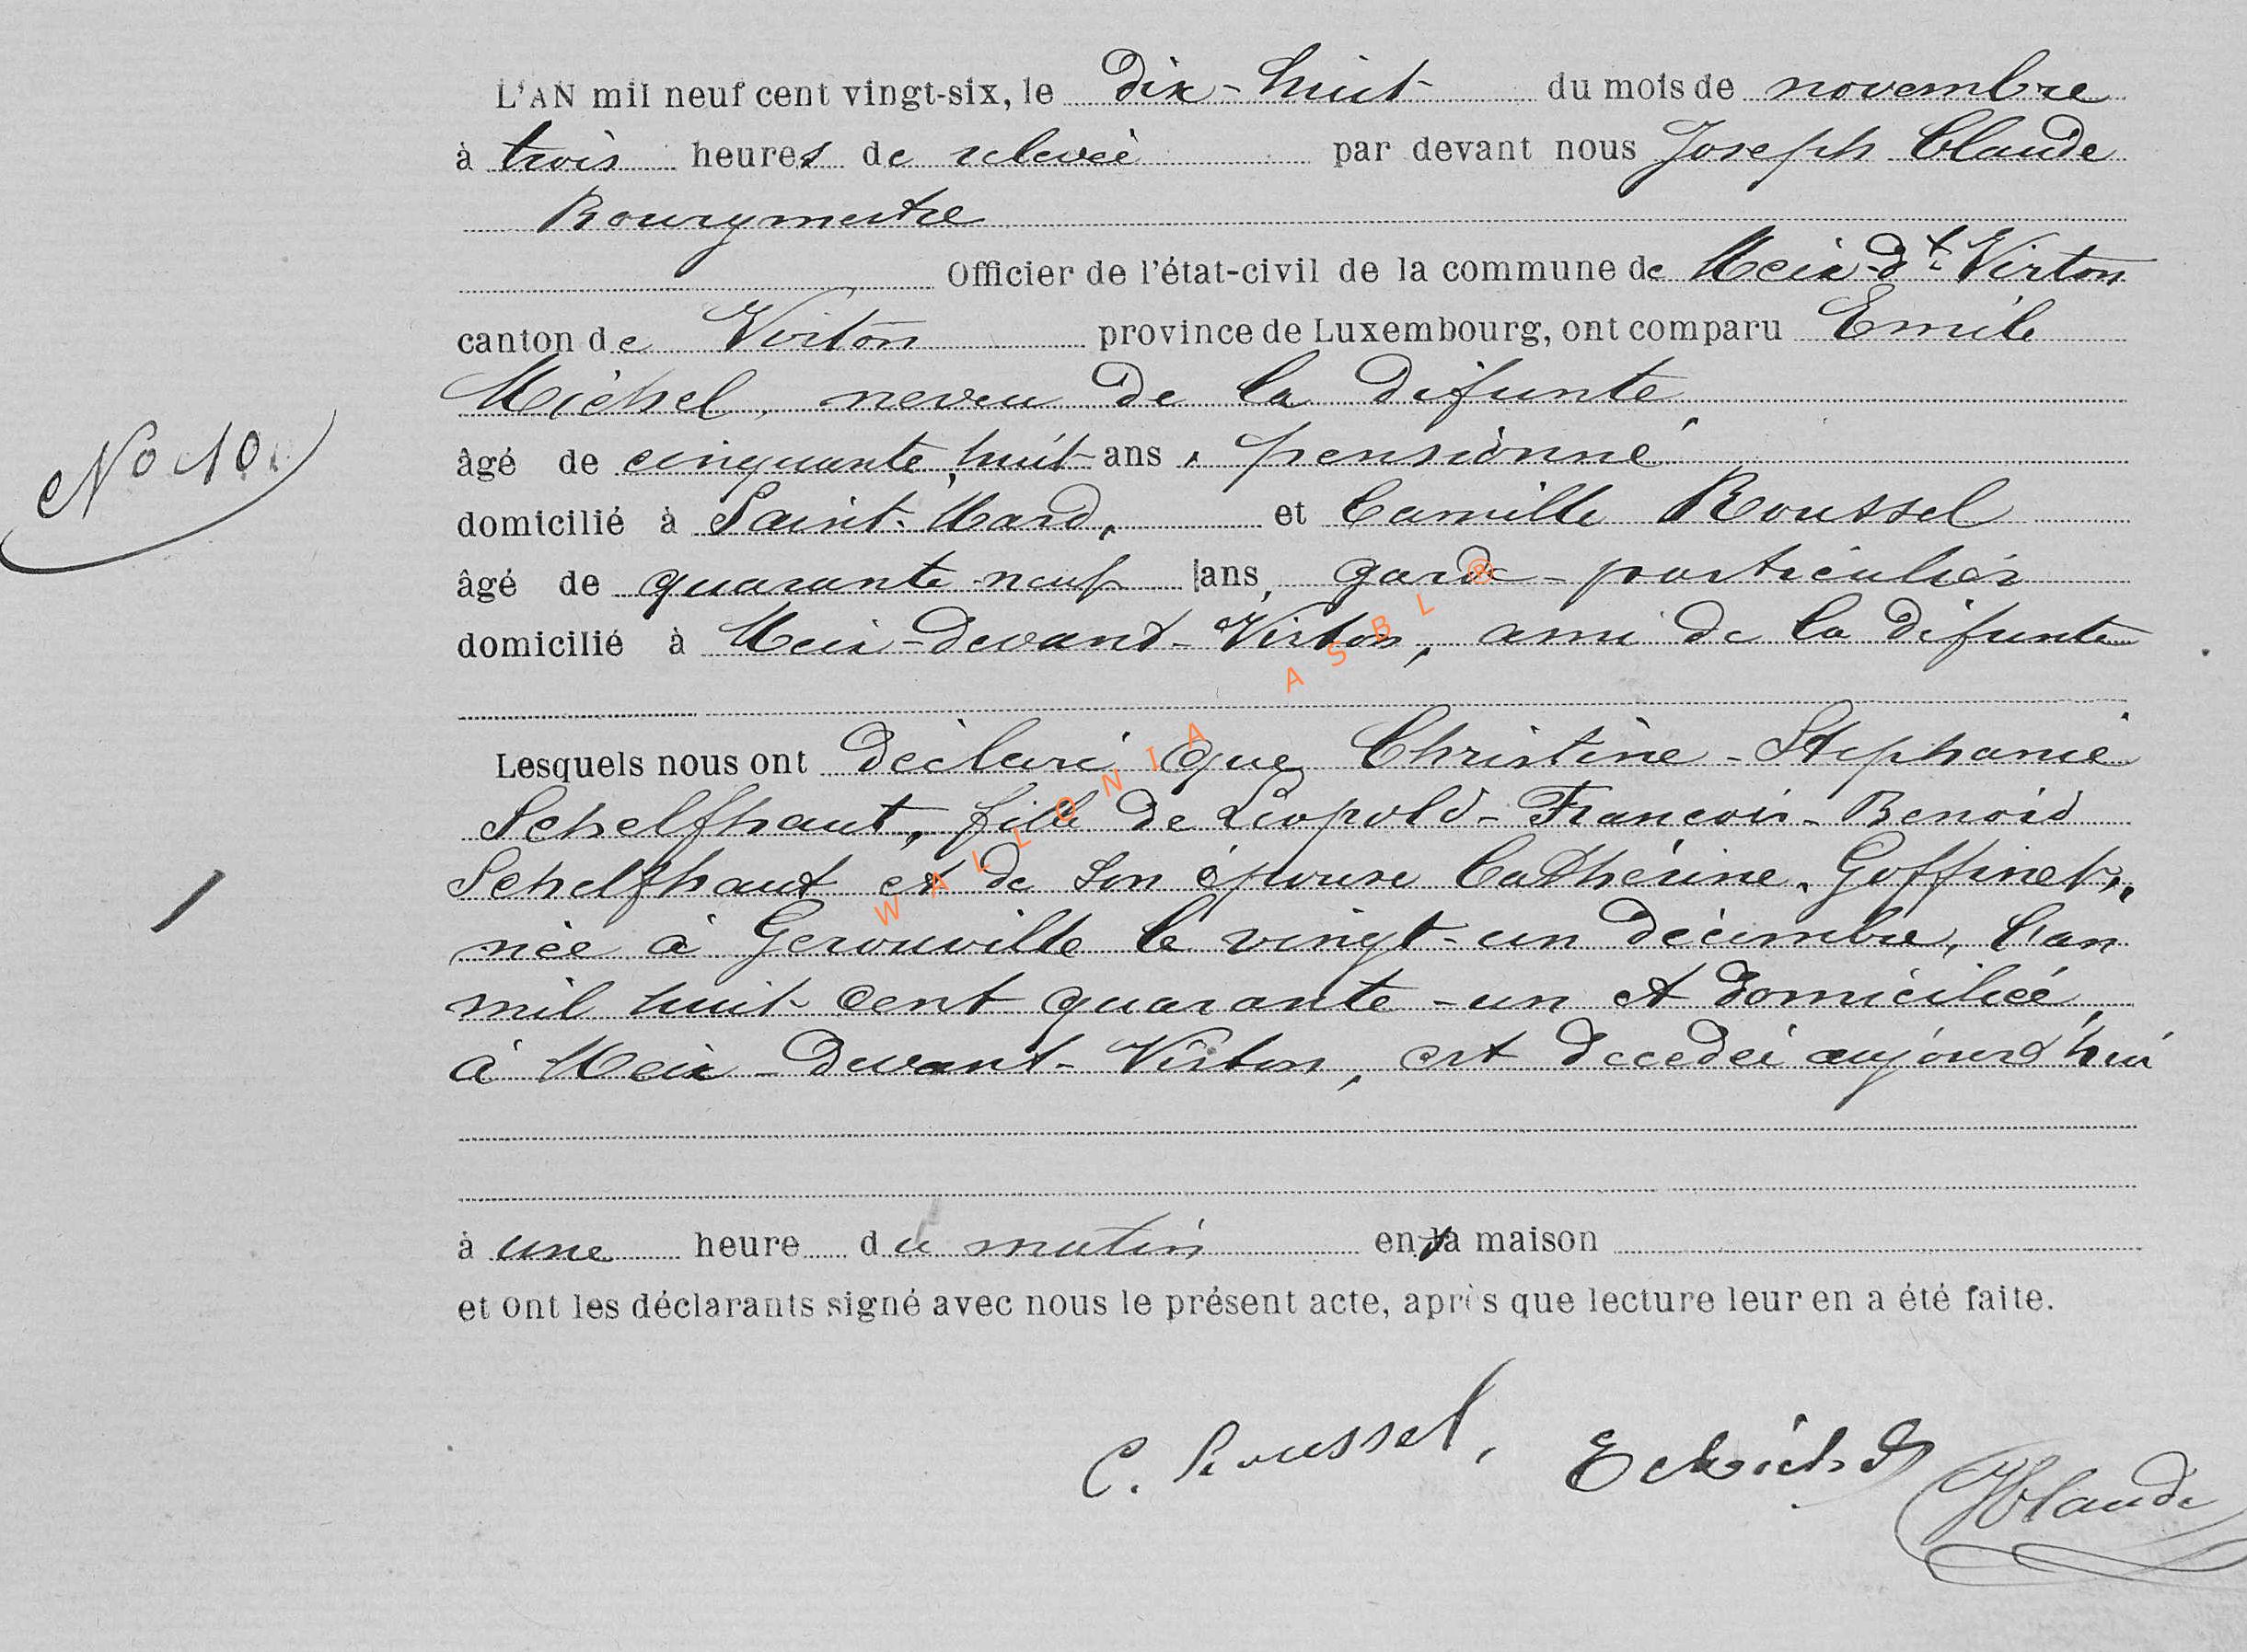 L'AN mil neuf cent vingt-six, le dix-huit du mois de novembre
à trois heures de relevée par devant nous Joseph Claude
Bourgmestre
Officier de l'état-civil de la commune de Meix-dt-Virton
canton de Virton province de Luxembourg, ont comparu Emile
Michel, neveu de la défunte
No 10.
âgé de cinquante huit ans, pensionné
domicilié à Saint-Mard, et Camille Roussel
âgé de quarante-neuf ans, garde-particulier
domicilié à Meix-devant-Virton, ami de la défunte
Lesquels nous ont déclaré que Christine-Stéphanie
Schelfhaut, fille de Léopold-François-Benoid
Schelfhaut et de son épouse Cathérine Goffinet,
née à Gerouville le vingt-un décembre, l'an
mil huit cent quarante-un et domiciliée,
à Meix-devant-Virton, est décédée aujourd'hui
à une heure du matin en sa maison
et ont les déclarants signé avec nous le présent acte, après que lecture leur en a été faite.
C. Roussel, E Michel JClaude
WALLONIA ASBL ®